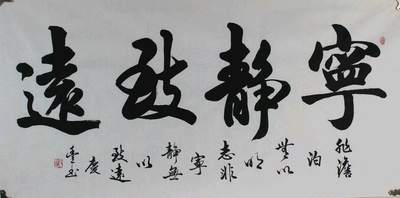 寧靜致遠
非澹
泊
無以
明
志非
寧
靜無
以
致遠